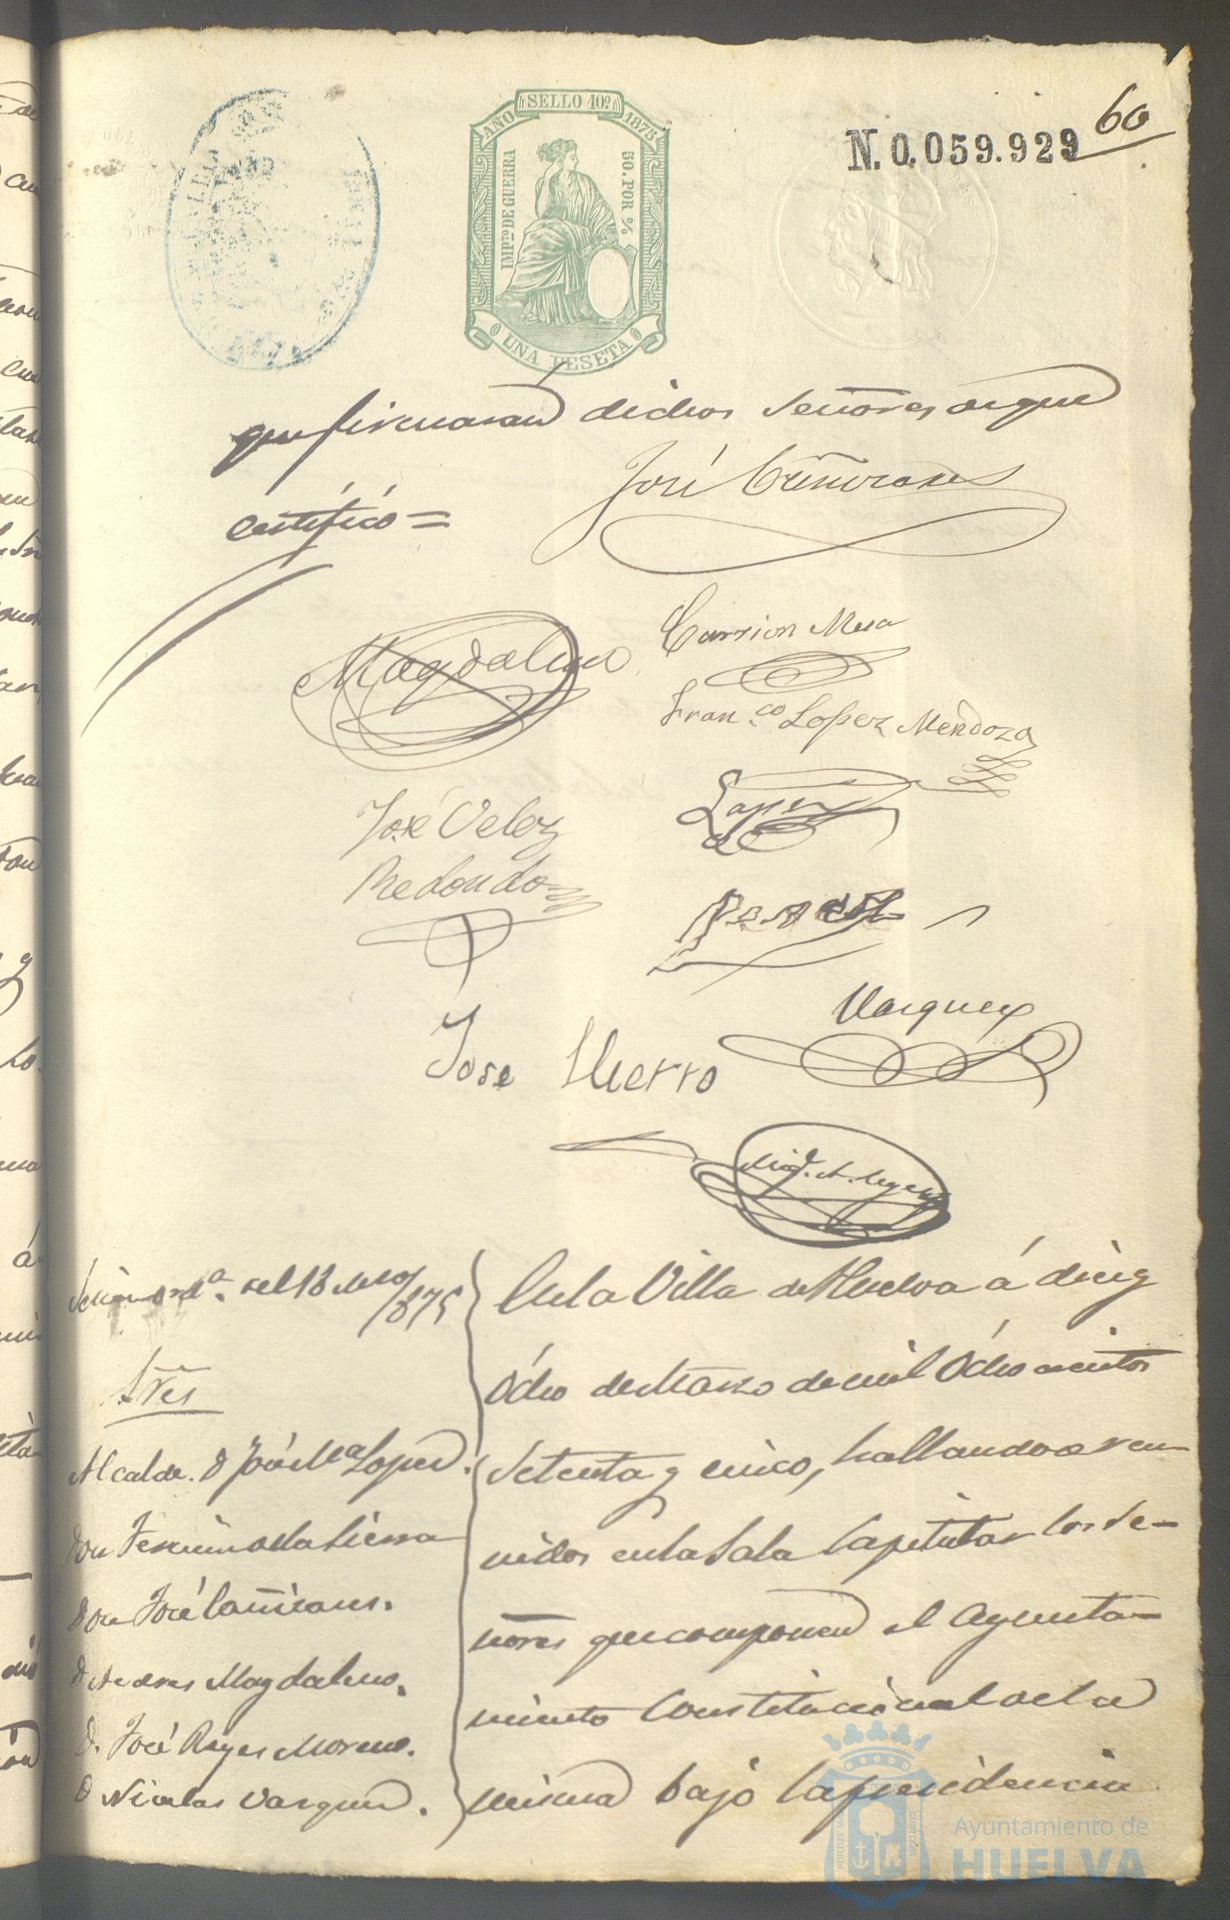 60
N. 0.059.929
SELLO 10º
AÑO 1875
IMPTO DE GUERRA
50. POR %
UNA PESETA
que firmaran dichos Señores de que
José Cañizares
certifico =
Magdaleno
Carrion Mesa
Franco Lopez Mendoza
José Velez
Redondo
Lopez
Vazquez
José Hierro
Sesion orda. del 18 Mzo/875
Sres
Alcalde. D José Ma Lopez.
Don Fermin de la Sierra
Don José Cañizares.
D Andres Magdaleno.
D. José Reyes Moreno.
D Nicolas Vazquez.
En la Villa de Huelva á diez y
Ocho de Marzo de mil Ochocientos
Setenta y cinco, hallandose reu-
nidos en la Sala Capitular los Se-
ñores que componen el Ayunta-
miento Constitucional de la
misma bajo la presidencia
Ayuntamiento de
HUELVA